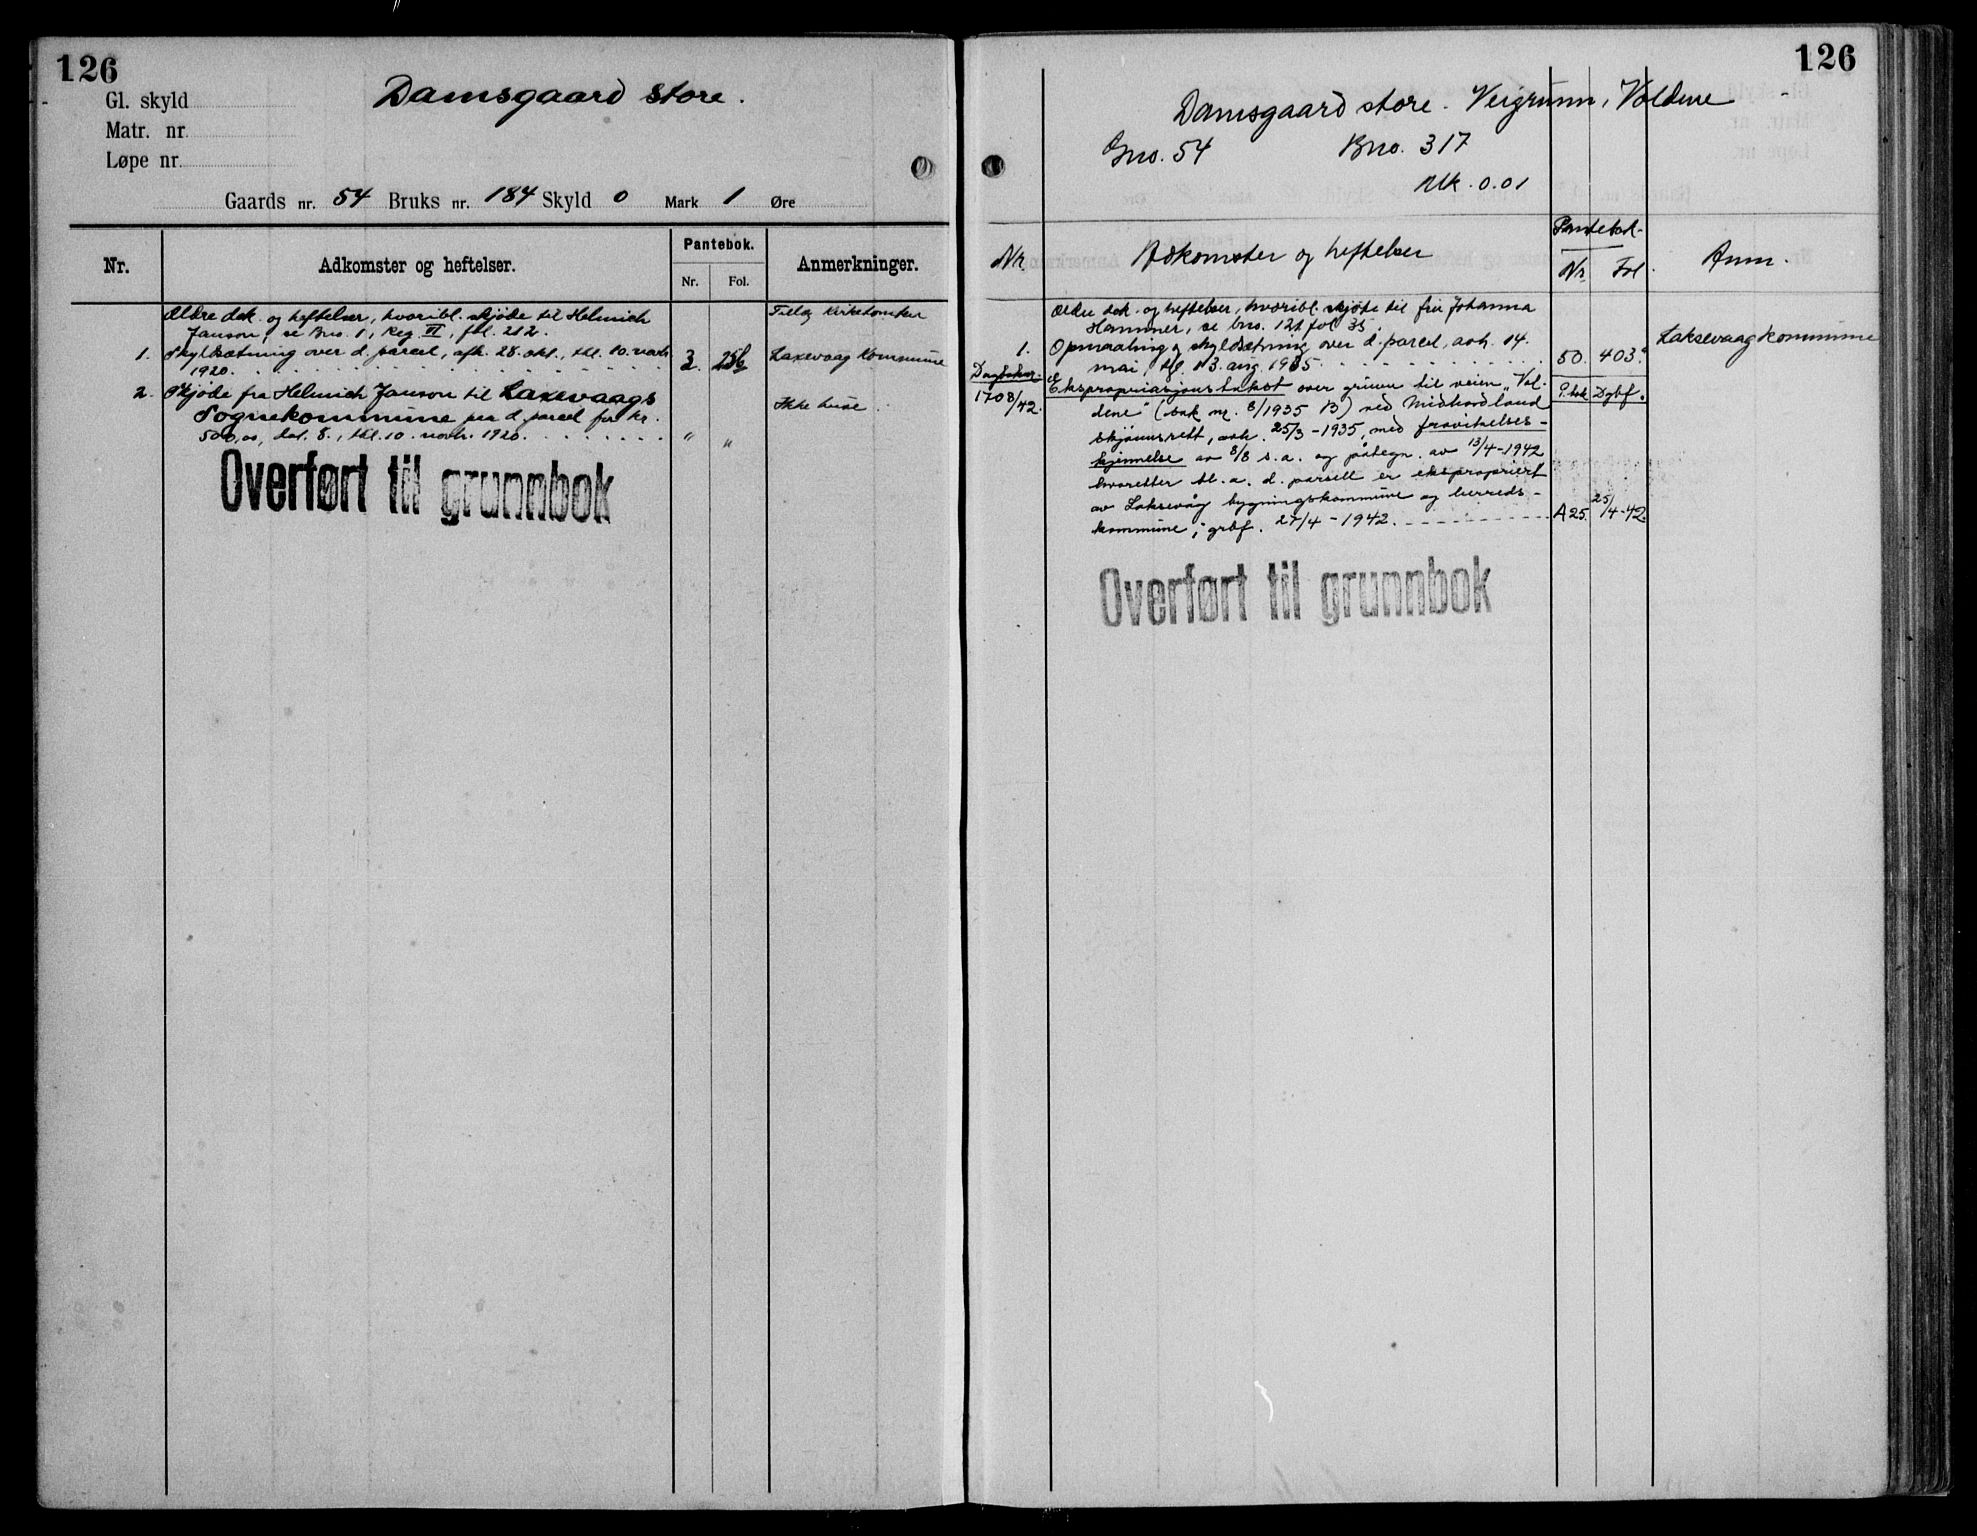 126
Gl. skyld
Damsgaard store.
Matr. nr.
Løpe nr.
Gaards nr. 54 Bruks nr. 184 Skyld 0 Mark 1 Øre
Nr.
Adkomster og heftelser.
Pantebok.
Nr. Fol.
Anmerkninger.
Ældre dok. og heftelser, hvoribl. skjøde til Helmich
Janson, se Bno. 1, Reg. VI, fol. 212.
1. Skyldsætning over d. parcel, afh. 28. okt., thl. 10. novb.
1920. 3. 256
Laxevaag Kommune
2. Skjøde fra Helmich Janson til Laxevaags
Sognekommune paa d. parcel for kr.
500,00, dat. 8., thl. 10. novb. 1920. " "
Ikke huse.
Overført til grunnbok
126
Damsgaard store. Veigrunn, Voldene
Gno. 54 Bno. 317
Mk. 0.01
Nr.
Adkomster og heftelser
Pantebok.
Nr. Fol.
Anm.
Ældre dok. og heftelser, hvoribl. skjøte til fru Johanna
Hammer, se bno. 121 fol 35.
1. Opmaaling og skyldsætning over d. parcel, avh. 14.
mai, tgl. 13. aug. 1935. 50. 403.
Laksevaag kommune
Dagboknr.
1708/42.
Ekspropriasjonstakst over grunn til veien "Vol-
dene" (sak nr. 8/1935 B) ved Midhordland
skjønnsrett, avh. 25/3-1935, med fravikelses-
kjennelse av 8/8 s.a. og påtegn. av 13/4-1942
hvoretter bl. a. d. parsell er ekspropriert
av Laksevåg bygningskommune og herreds-
kommune, grbf. 27/4-1942.
P.bok Dgbf.
A25. 25/4-42.
Overført til grunnbok